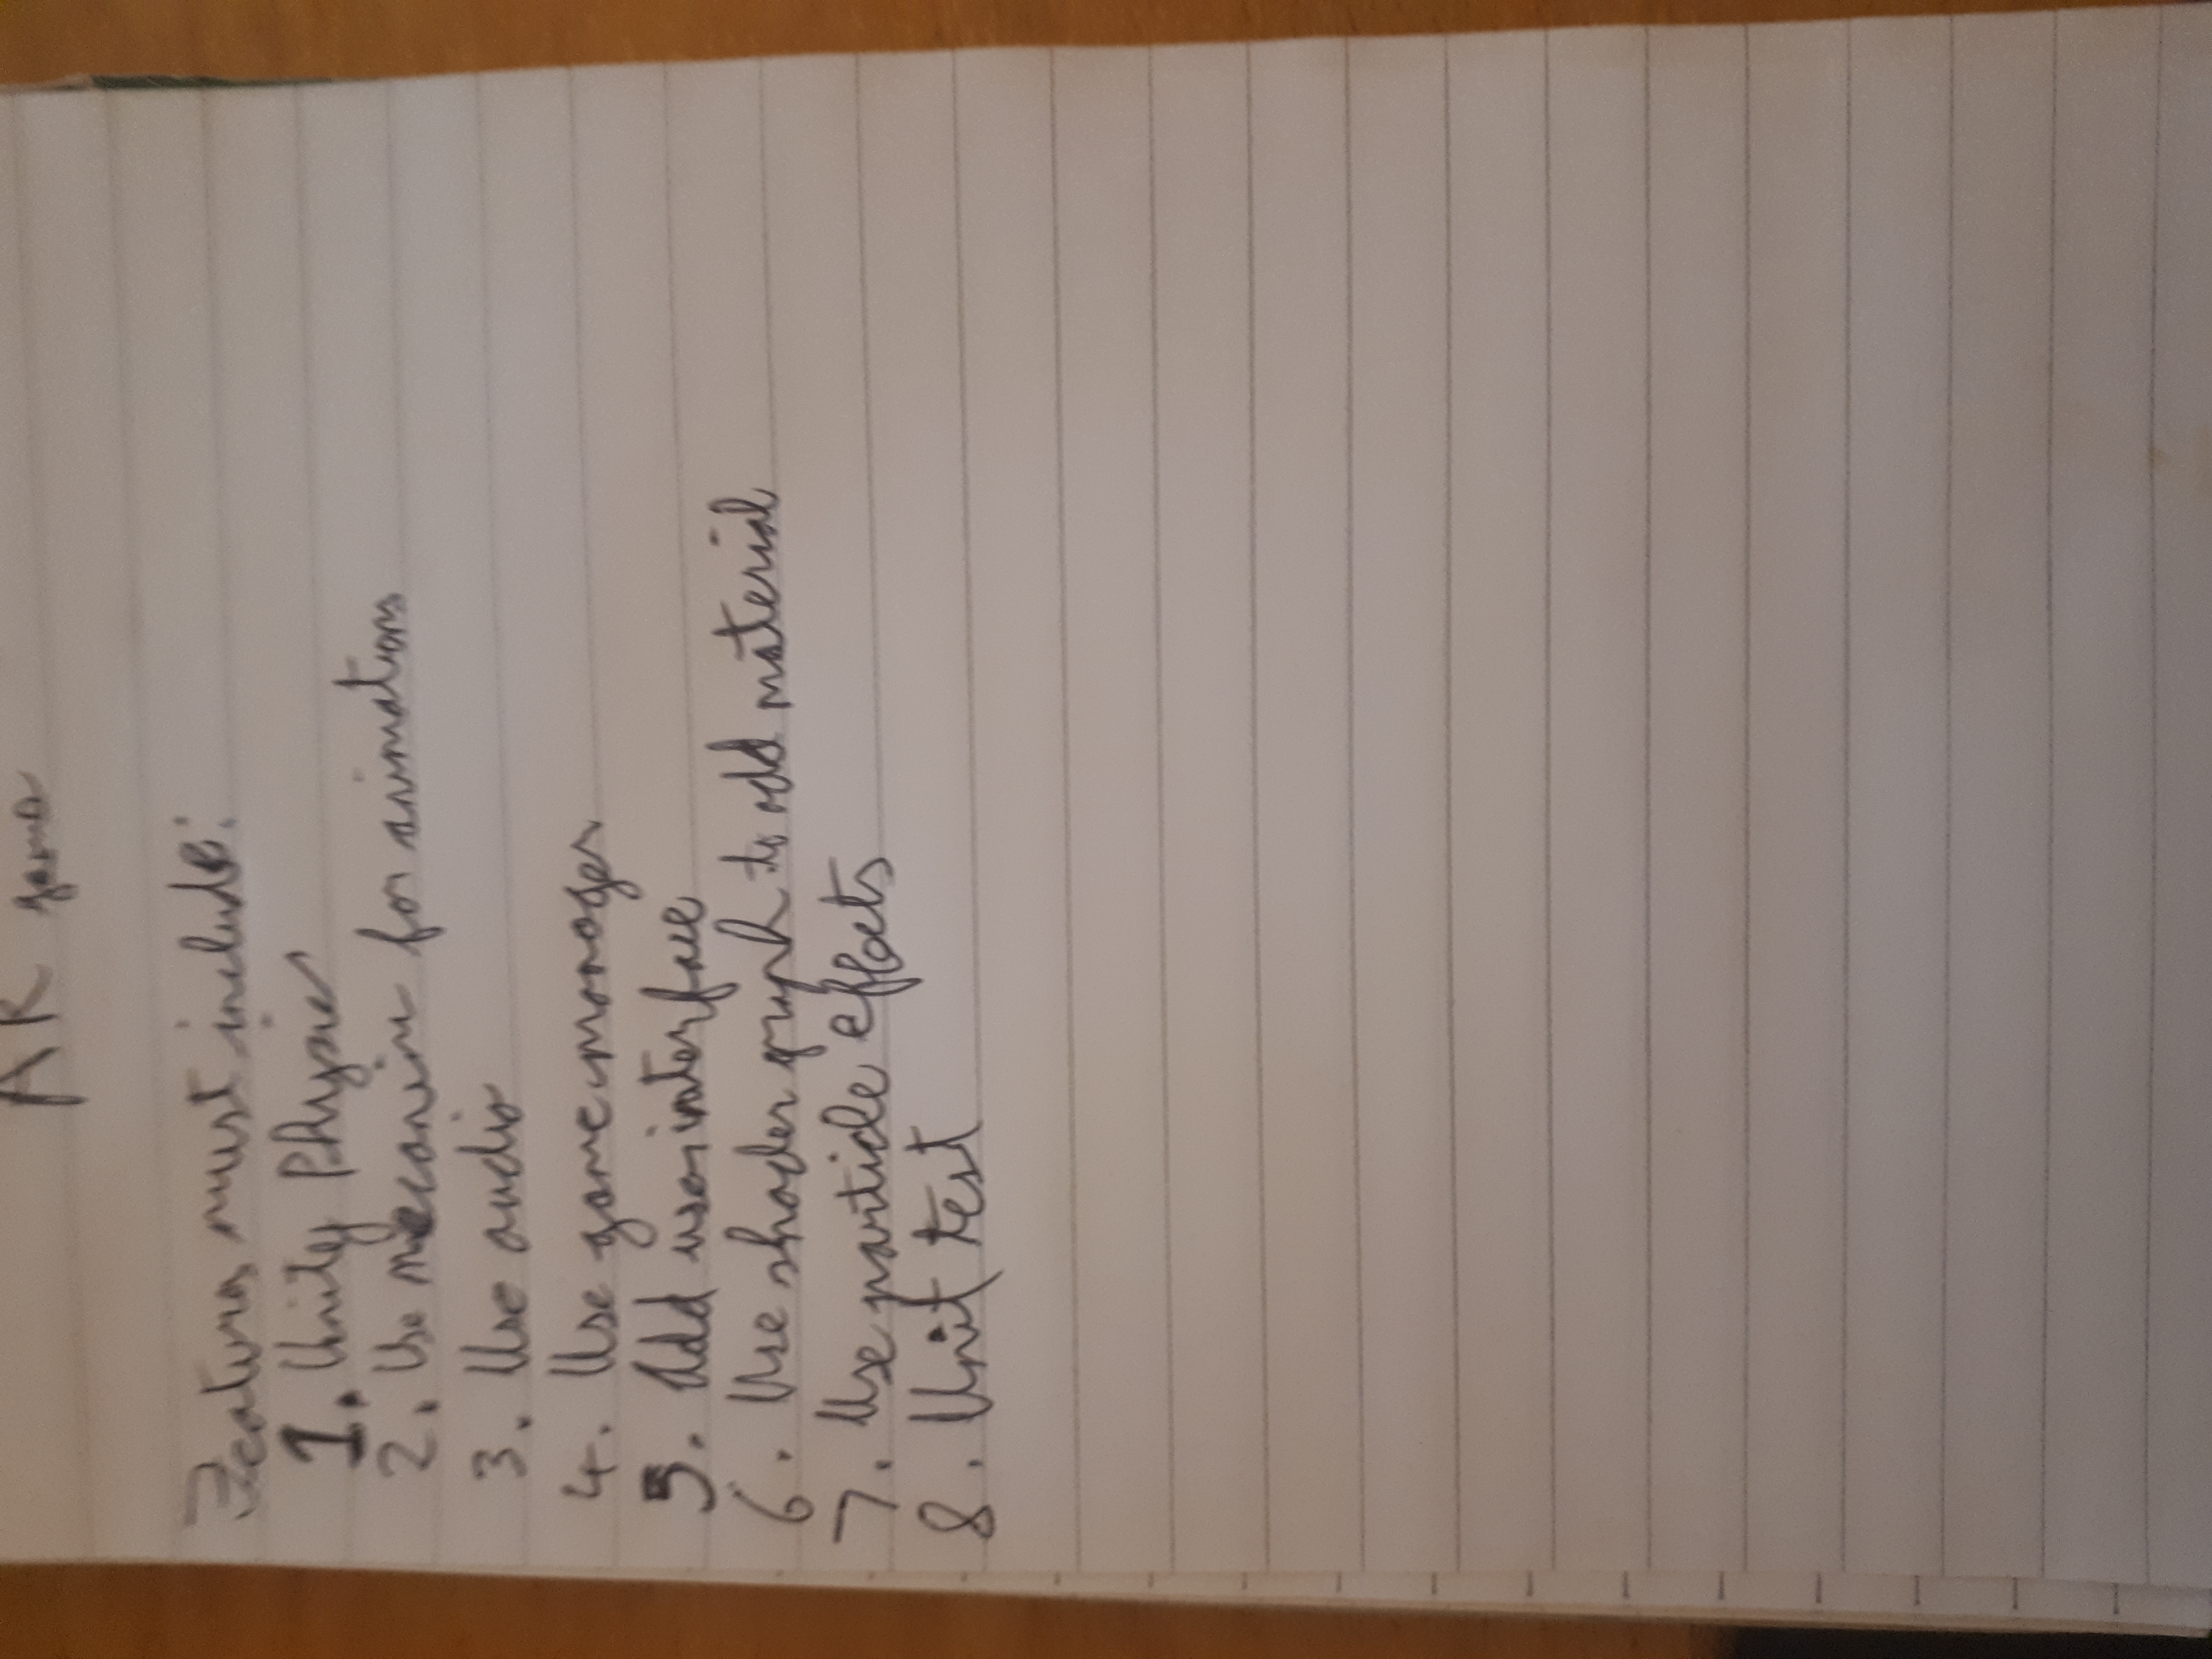 AR game
Features must include:
1. Unity Physics
2. Use mecanim for animations
3. Use audio
4. Use game manager
5. Add user interface
6. Use shader graph to add material
7. Use particle effects
8. Unit test